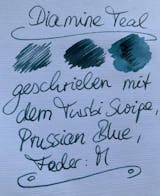 Diamine Teal
geschrieben mit
dem Twsbi Swipe,
Prussian Blue,
Feder: M